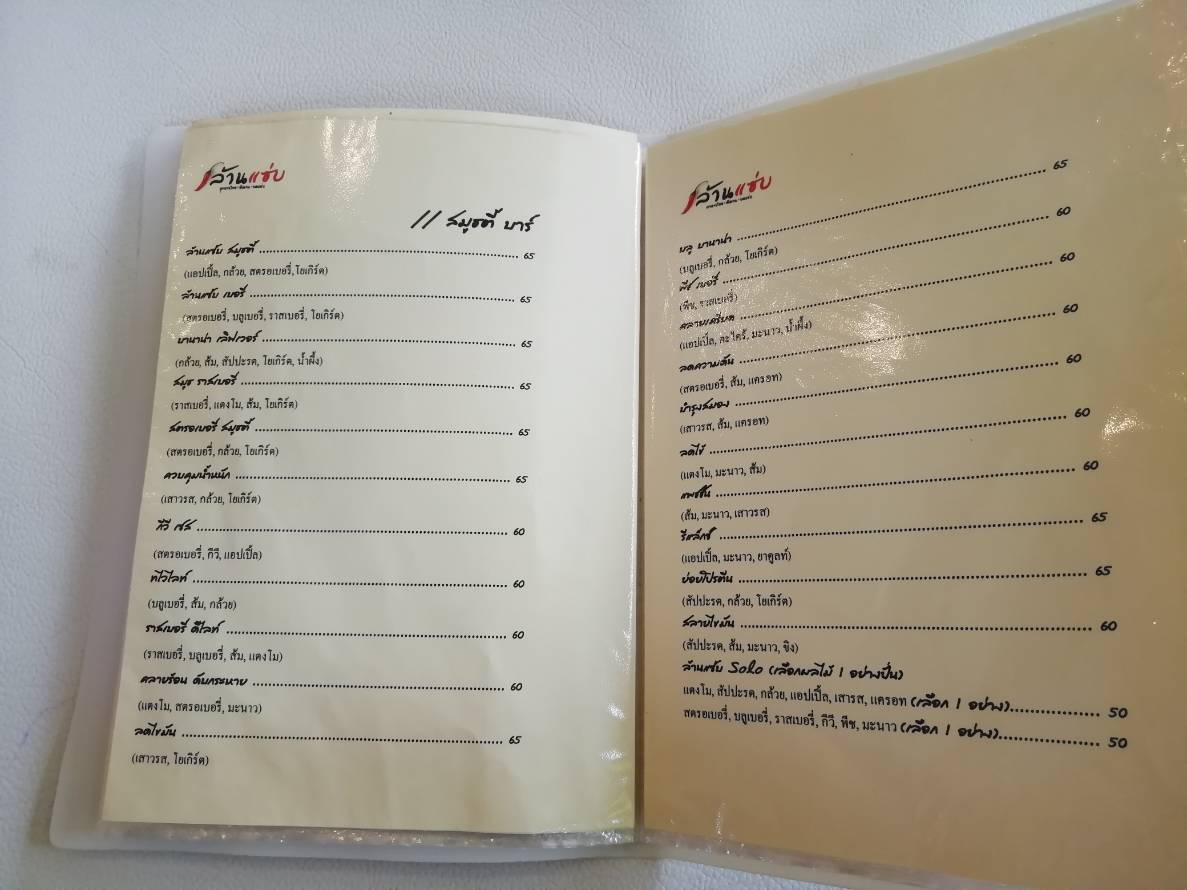 ล้านแซ่บ
// สมูธตี้ บาร์
ล้านแซ่บ สมูธตี้ 65
(แอปเปิ้ล, กล้วย, สตรอเบอรี่,โยเกิร์ต)
ล้านแซ่บ เบอรี่ 65
(สตรอเบอรี่, บลูเบอรี่, ราสเบอรี่, โยเกิร์ต)
บานาน่า เลิฟเวอร์ 65
(กล้วย, ส้ม, สัปปะรด, โยเกิร์ต, น้ำผึ้ง)
สมูธ ราสเบอรี่ 65
(ราสเบอรี่, แตงโม, ส้ม, โยเกิร์ต)
สตรอเบอรี่ สมูธตี้ 65
(สตรอเบอรี่, กล้วย, โยเกิร์ต)
ควบคุมน้ำหนัก 65
(เสาวรส, กล้วย, โยเกิร์ต)
กีวี 60
(สตรอเบอรี่, กีวี, แอปเปิ้ล)
ทไวไลท์ 60
(บลูเบอรี่, ส้ม, กล้วย)
ราสเบอรี่ ดีไลท์ 60
(ราสเบอรี่, บลูเบอรี่, ส้ม, แตงโม)
คลายร้อน ดับกระหาย 60
(แตงโม, สตรอเบอรี่, มะนาว)
ลดไขมัน 65
(เสาวรส, โยเกิร์ต)
ล้านแซ่บ
บลู บานาน่า 65
(บลูเบอรี่, กล้วย, โยเกิร์ต)
พีช เบอรี่ 60
(พีช, ราสเบอรี่)
คลายเครียด 60
(แอปเปิ้ล, ตะไคร้, มะนาว, น้ำผึ้ง)
ลดความดัน 60
(สตรอเบอรี่, ส้ม, แครอท)
บำรุงสมอง 60
(เสาวรส, ส้ม, แครอท)
ลดไข้ 60
(แตงโม, มะนาว, ส้ม)
แพชชั่น 60
(ส้ม, มะนาว, เสาวรส)
รีแล็กซ์ 65
(แอปเปิ้ล, มะนาว, ยาคูลท์)
ย่อยโปรตีน 65
(สัปปะรด, กล้วย, โยเกิร์ต)
สลายไขมัน 60
(สัปปะรด, ส้ม, มะนาว, ขิง)
ล้านแซ่บ Solo (เลือกผลไม้ 1 อย่างปั่น)
แตงโม, สัปปะรด, กล้วย, แอปเปิ้ล, เสารส, แครอท (เลือก 1 อย่าง) 50
สตรอเบอรี่, บลูเบอรี่, ราสเบอรี่, กีวี, พีช, มะนาว (เลือก 1 อย่าง) 50